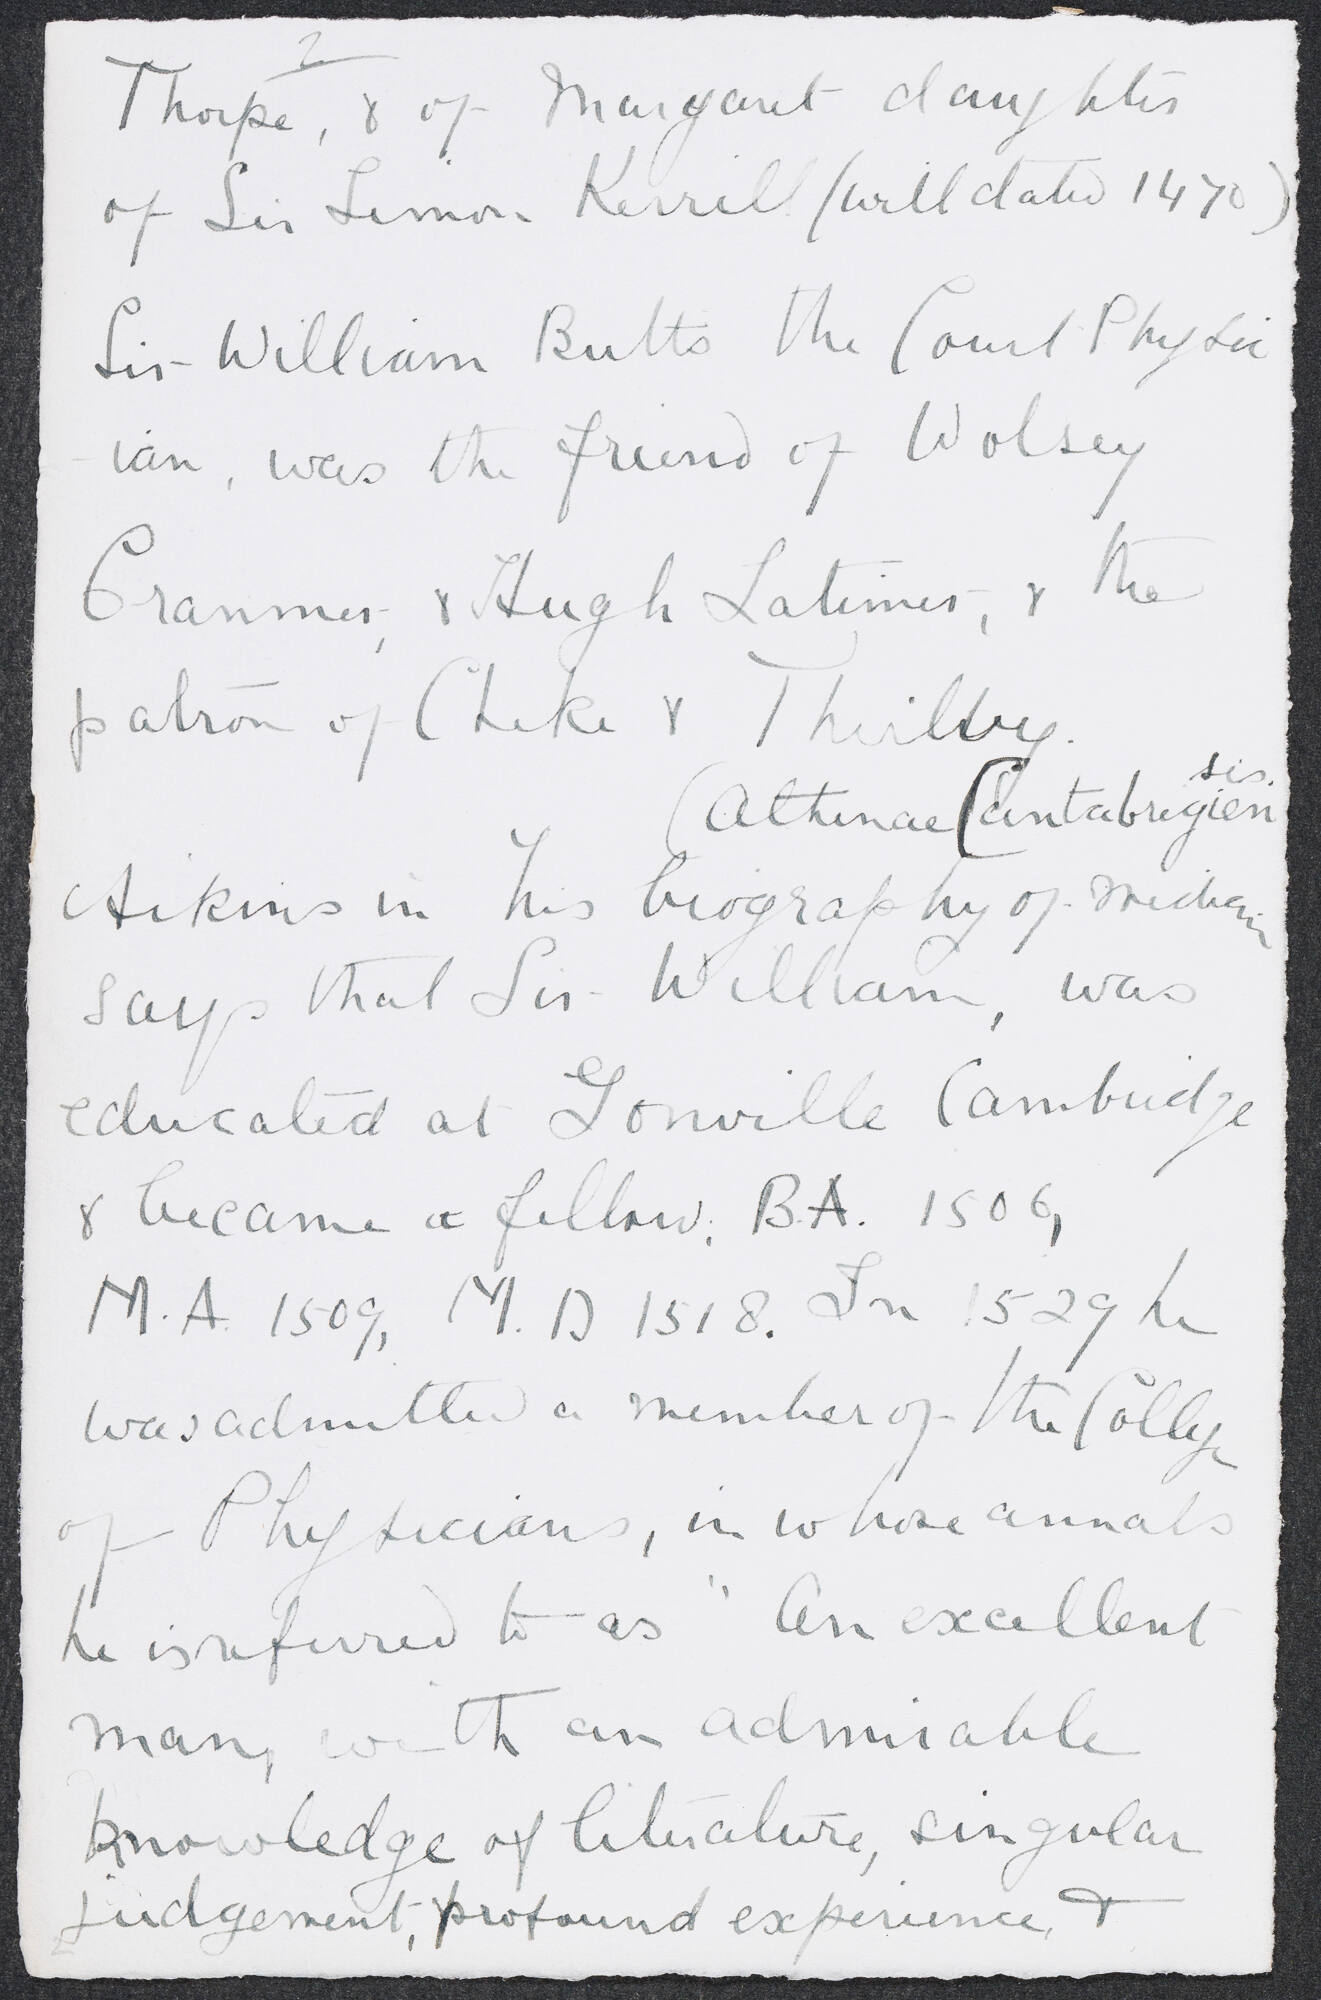 2
Thorpe, & of Margaret daughter
of Sir Simon Kerrill (will dated 1470)
Sir William Butts the Court Physic
-ian, was the friend of Wolsey
Cranmer, & Hugh Latimer, & the
patron of Cheke & Thirlby.
(Athenae Cantabrigien
sis.
Aikins in his biography of medicin
says that Sir William, was
educated at Gonville Cambridge
& became a fellow. B.A. 1506,
M.A. 1509, M.D 1518. In 1529 he
was admitted a member of the College
of Physicians, in whose annals
he is referred to as "An excellent
man, with an admirable
knowledge of literature, singular
judgement, profound experience, &